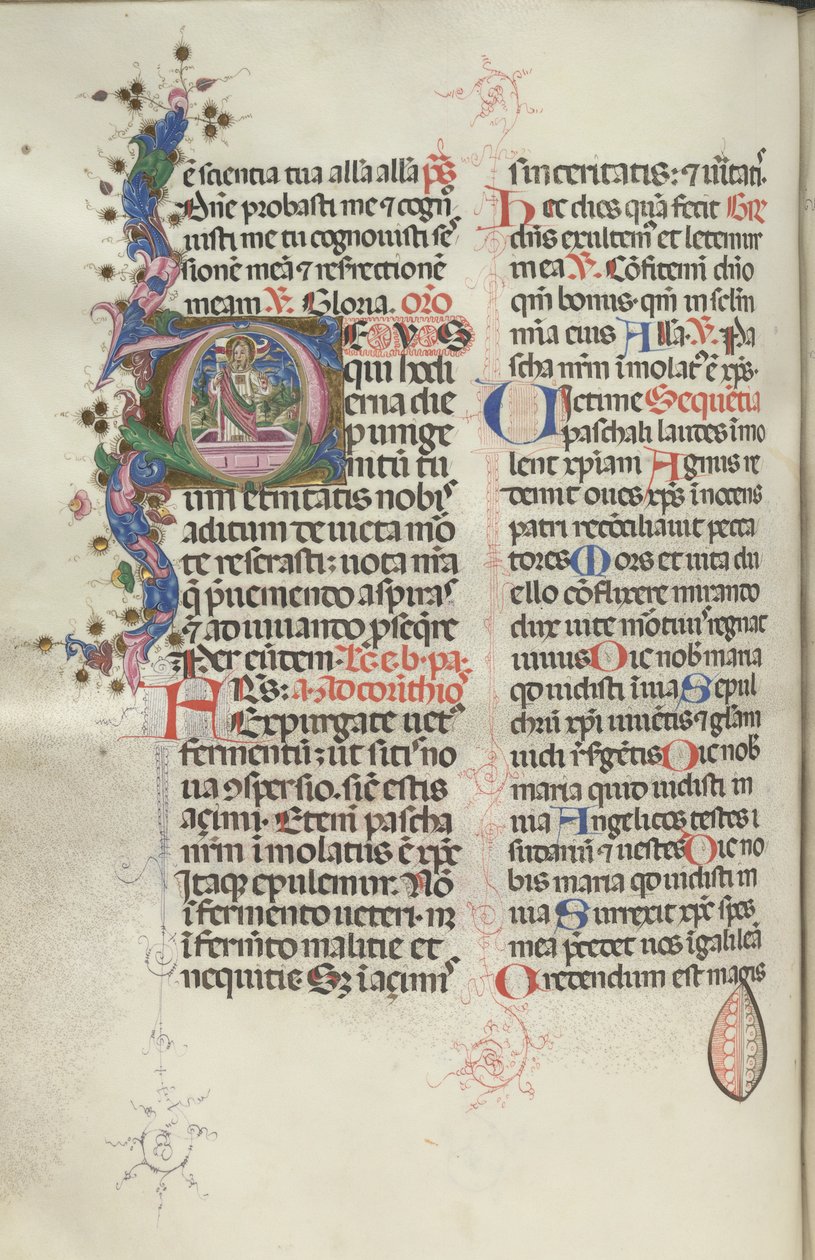 ē scientia tua allā allā p̄s
Dn̄e probasti me ⁊ cogno
uisti me tu cognouisti se
sionē meā ⁊ resrectionē
meam ℣. Gloria. or̄o
DEVS
qui hodi
erna die
p unige
nitū tu
um etnitatis nobis
aditum deuicta mo
te reserasti: uota nr̄a
q̄ p̄ueniendo aspiras
⁊ adiuuando ꝓseq̄re
Per eūdem. Lc̄. e. b. pa.
FR̄S: a. ad corinthios
Expurgate uetꝰ
fermentū: ut sitis no
ua ꝯspersio. sic̄ estis
açimi. Eteni pascha
nr̄m īmolatus ē xp̄c
Itaq̨ epulemur. Nō
ī fermento ueteri. nꝫ
ī ferm̄to malitie et
nequitie. Sꝫ ī açimis
sinceritatis: ⁊ uītatis.
Hec dies quā fecit Gr̄
dn̄s exultem̄ et letemur
in ea ℣. Cōfitemī dn̄o
qm̄ bonus. qm̄ in sclm̄
mīa eius Alla. ℣. Pa
scha nr̄m īmolatꝰ ē xp̄s.
Uictime Sequētia
paschali laudes īmo
lent xp̄iani Agnus re
demit oues xp̄s īnocens
patri recōciliauit pecca
tores Mors et uita du
ello cōflixere mirando
dux uite mōtuus regnat
uiuus Dic nob̄ maria
qd uidisti ī uia Sepul
chrū xp̄i uiuētis ⁊ glām
uidi r̄sḡētis Dic nob̄
maria quid uidisti in
uia Angelicos testes ī
sudariū ⁊ uestes Dic no
bis maria qd uidisti in
uia Surrexit xp̄c spes
mea p̄cedet uos ī galileā
Credendum est magis